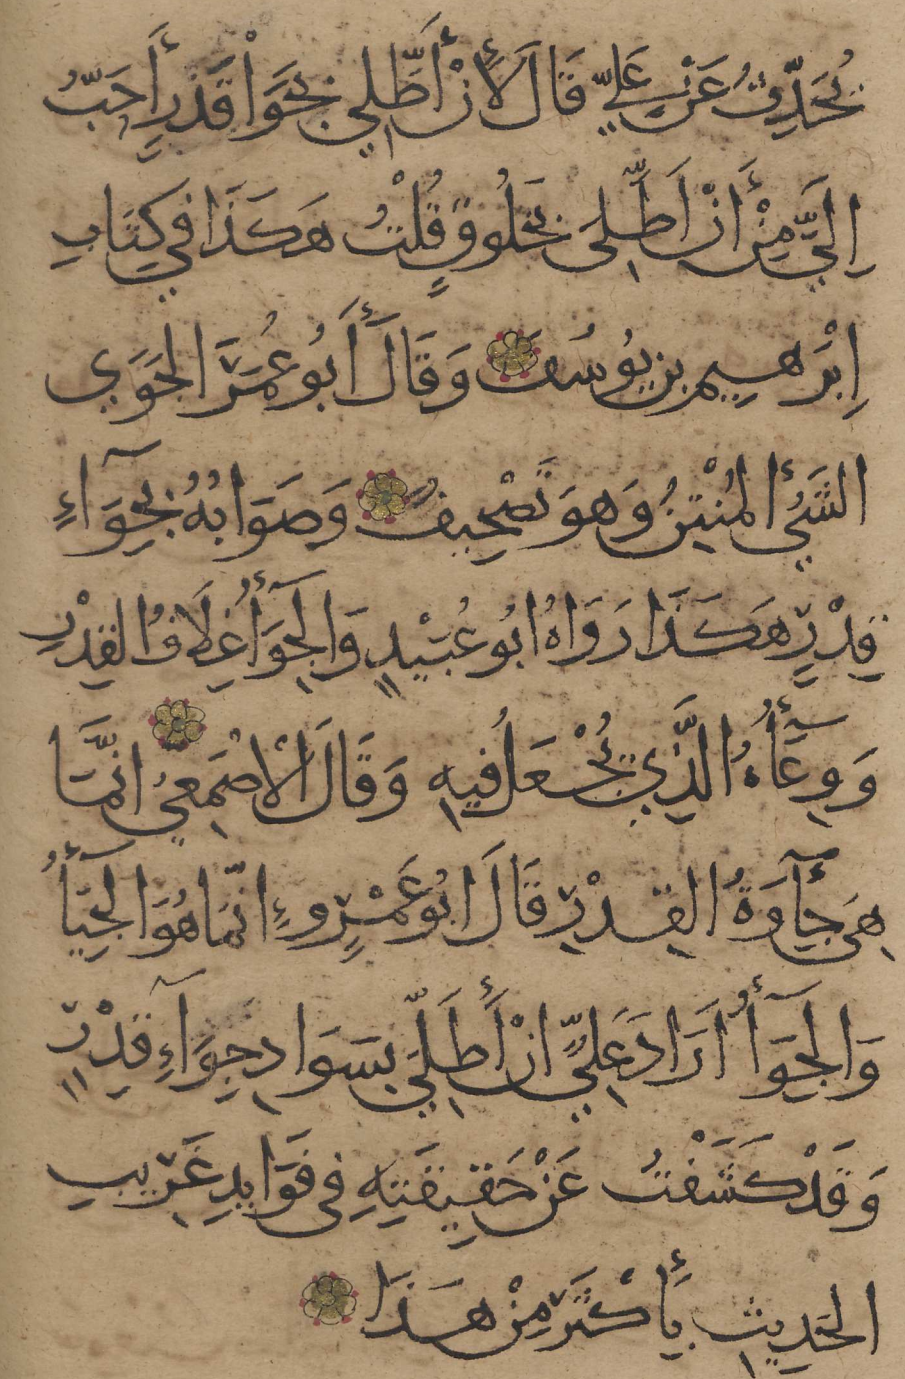 يُحَدِّثُ عَنْ عَلِيٍّ قَالَ لَأَنْ أَطَّلِي بِحَوَاْ قَذِرٍ أَحَبُّ
اِلَيَّ مِنْ أَنْ اَطَّلِىَ بِخَلُوقٍ قُلْتُ هَكَذَا فِي كِتَابِ
اِبْرَهِيم بن يُوسُفَ وَقَالَ أَبُو عُمَرَ الحَوَي
الشَئُ المُنْتِنُ وَهوَ تَصْحِيفٌ وَصَوَابُهُ بِجِوَآءِ
قِدْرٍ هَكَذَا رَوَاهُ ابُو عُبَيْدٍ وَالجِوَأُ غِلَافُ القِدْرِ
وَوِعَآؤُهُ الَّذِي يُجْعَلُ فيهِ وَقَالَ الْاصْمَعِيُ انَّمَا
هِىَ جِآوَةُ القِدْرِ قَالَ ابُو عَمْرٍو إنّمَا هُوَ الجِيَأُ
وَالجِوَأُ اَرَادَ عَلِيٌّ انْ أَطَلِيَ بِسَوَادِ جِوَآءِ قِدْرٍ
وَقَدْ كَشَفْتُ عَنْ حَقِيقَتِهِ فِى فَوَايدِ غَرِيبِ
الحَدِيثِ بِأَكْثَرَ مِنْ هَذَا